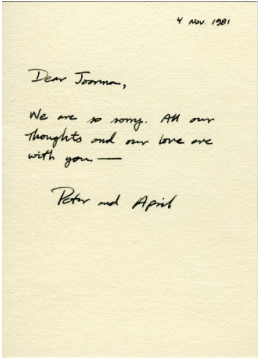 4 Nov. 1981
Dear Joanna,
We are so sorry. All our
thoughts and our love are
with you —
Peter and April